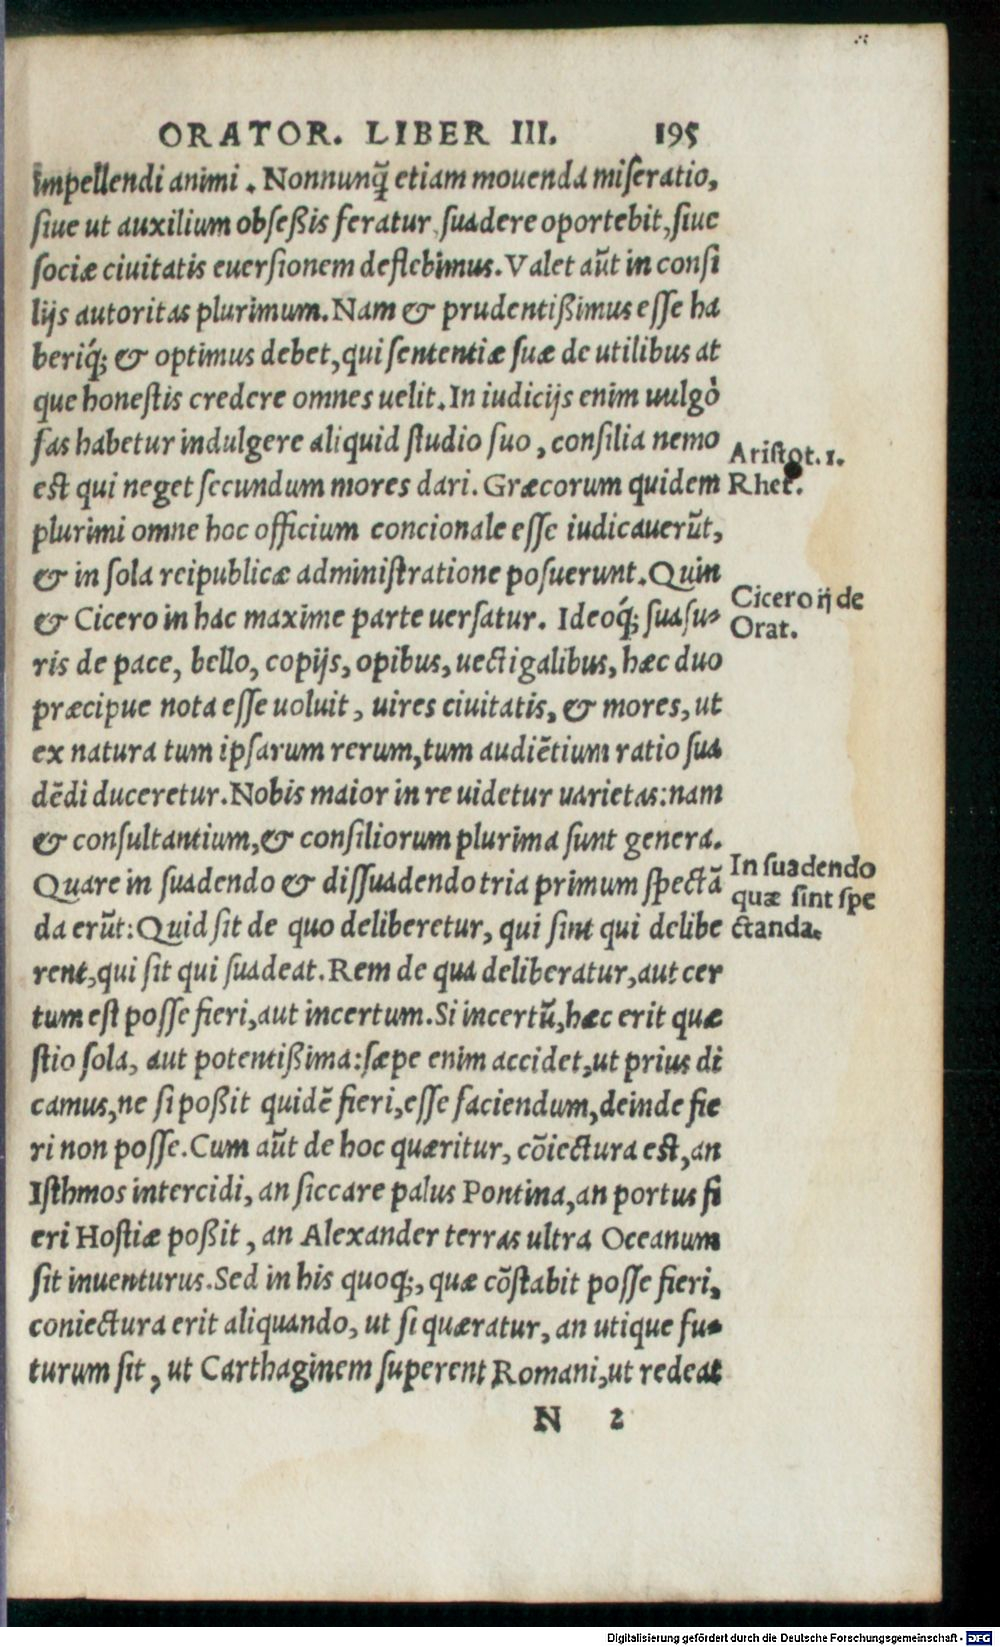 ORATOR. LIBER III. 195
impellendi animi. Nonnunq̃ etiam mouenda miſeratio,
ſiue ut auxilium obſeßis feratur, ſuadere oportebit, ſiue
ſociæ ciuitatis euerſionem deflebimus. Valet aũt in conſi
lijs autoritas plurimum. Nam & prudentißimus eſſe ha
beriq́; & optimus debet, qui ſententiæ ſuæ de utilibus at
que honeſtis credere omnes uelit. In iudicijs enim uulgò
fas habetur indulgere aliquid ſtudio ſuo, conſilia nemo
eſt qui neget ſecundum mores dari. Græcorum quidem
Ariſtot. 1.
Rhet.
plurimi omne hoc officium concionale eſſe iudicauerũt,
& in ſola reipublicæ adminiſtratione poſuerunt. Quin
& Cicero in hac maxime parte uerſatur. Ideoq́; ſuaſu-
Cicero ij de
Orat.
ris de pace, bello, copijs, opibus, uectigalibus, hæc duo
præcipue nota eſſe uoluit, uires ciuitatis, & mores, ut
ex natura tum ipſarum rerum, tum audiẽtium ratio ſua
dẽdi duceretur. Nobis maior in re uidetur uarietas: nam
& conſultantium, & conſiliorum plurima ſunt genera.
Quare in ſuadendo & diſſuadendo tria primum ſpectã
da erũt: Quid ſit de quo deliberetur, qui ſint qui delibe
In ſuadendo
quæ ſint ſpe
ctanda.
rent, qui ſit qui ſuadeat. Rem de qua deliberatur, aut cer
tum eſt poſſe fieri, aut incertum. Si incertũ, hæc erit quæ
ſtio ſola, aut potentißima: ſæpe enim accidet, ut prius di
camus, ne ſi poßit quidẽ fieri, eſſe faciendum, deinde fie
ri non poſſe. Cum aũt de hoc quæritur, cõiectura eſt, an
Iſthmos intercidi, an ſiccare palus Pontina, an portus fi
eri Hoſtiæ poßit, an Alexander terras ultra Oceanum
ſit inuenturus. Sed in his quoq;, quæ cõſtabit poſſe fieri,
coniectura erit aliquando, ut ſi quæratur, an utique fu-
turum ſit, ut Carthaginem ſuperent Romani, ut redeat
N 2
Digitalisierung gefördert durch die Deutsche Forschungsgemeinschaft - DFG